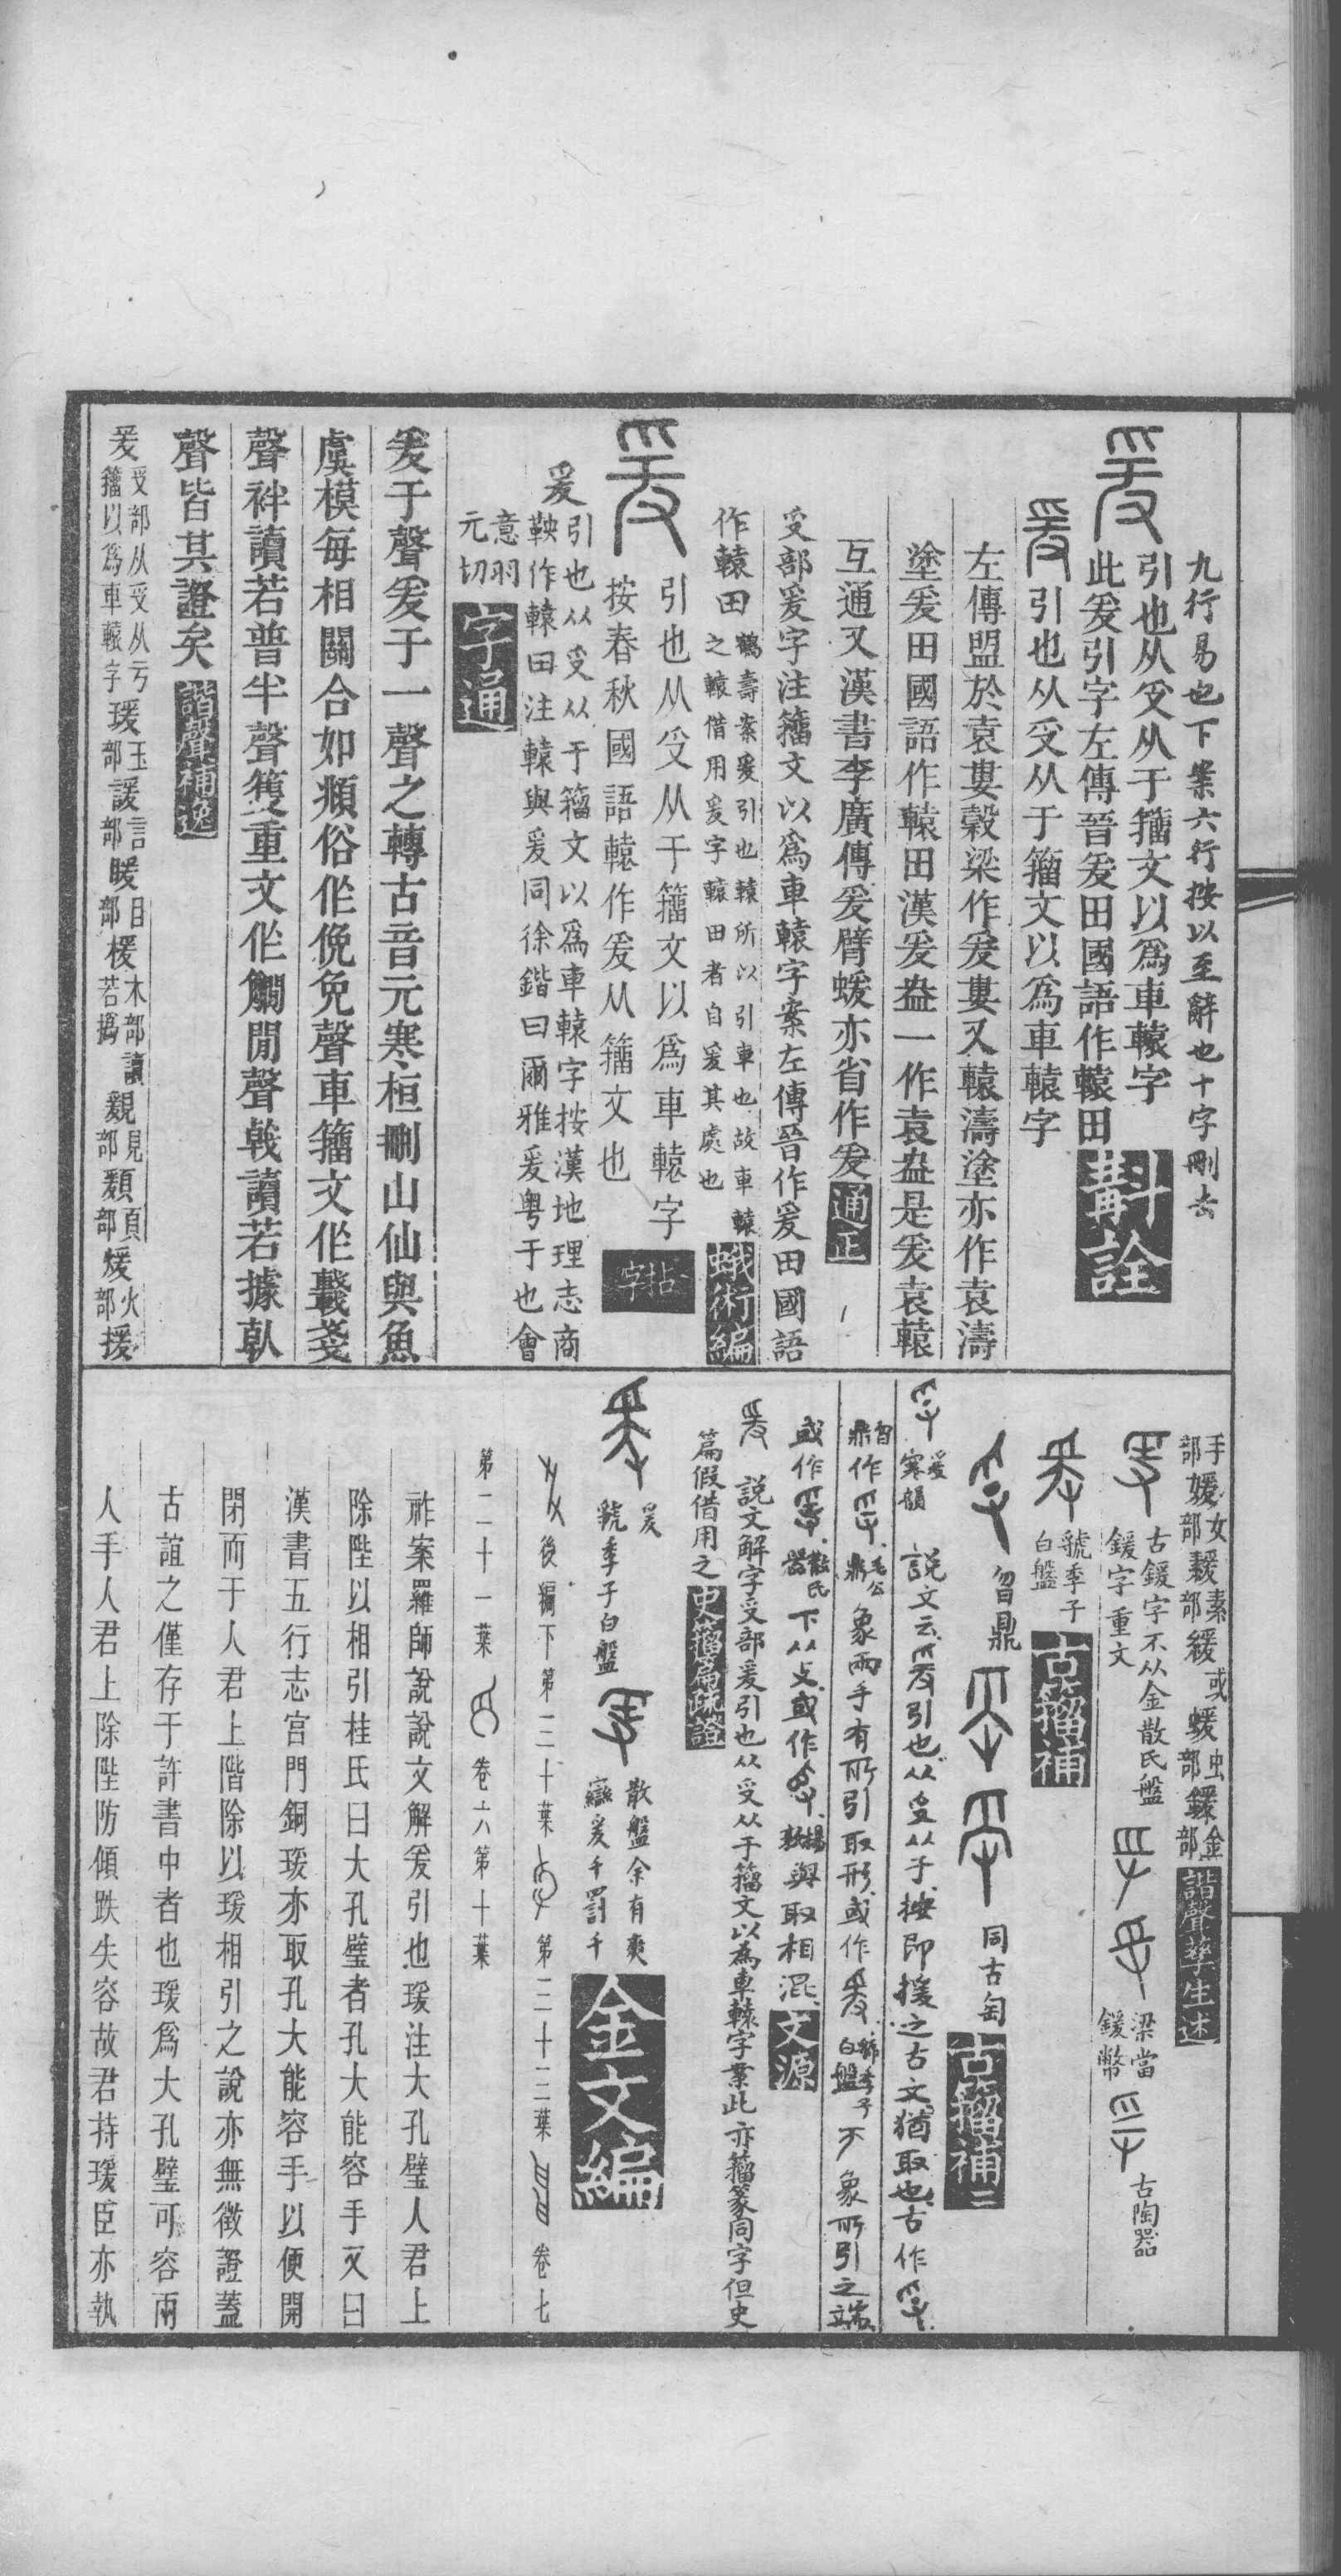 九行易也下案六行按以至辭也十字刪去
引也从𠬪从于籀文以爲車轅字
此爰引字左傳晉爰田國語作轅田
斠詮
引也从𠬪从于籀文以爲車轅字
左傳盟於袁婁穀梁作爰婁又轅濤塗亦作袁濤
塗爰田國語作轅田漢爰盎一作袁盎是爰袁轅
互通又漢書李廣傳爰臂蝯亦省作爰
通正
𠬪部爰字注籀文以爲車轅字案左傳晉作爰田國語
作轅田
鶴壽案爰引也轅所以引車也故車轅
之轅借用爰字轅田者自爰其處也
蛾術編
引也从𠬪从于籀文以爲車轅字
按春秋國語轅作爰从籀文也
拈字
爰
引也从𠬪从于籀文以爲車轅字按漢地理志商
鞅作轅田注轅與爰同徐鍇曰爾雅爰粵于也會
意羽
元切
字通
爰于聲爰于一聲之轉古音元寒桓刪山仙與魚
虞模每相關合如頫俗作俛免聲車籀文作𨏖戔
聲袢讀若普半聲籆重文作觸閒聲戟讀若據倝
聲皆其證矣
諧聲補逸
爰
𠬪部从𠬪从亏
籀以爲車轅字
瑗
玉部
諼
言部
暖
目部
楥
木部讀
若撝
覣
見部
頯
頁部
煖
火部
援
手部
媛
女部
𦆓
素部
緩
或
蝯
虫部
鍰
金部
諧聲孳生述
古鍰字不从金散氏盤
鍰字重文
梁當
鍰幣
古陶器
虢季子
白盤
古籀補
曶鼎
同古匋
古籀補二
爰
寒韻
說文云爰引也从𠬪从于按即援之古文猶取也古作
曶鼎
作
毛公鼎
象兩手有所引取形或作
虢季子白盤
不象所引之端
或作
散氏器
下从攴或作
揚敦
與取相混
文源
說文解字𠬪部爰引也从𠬪从于籀文以爲車轅字業此亦籀篆同字但史
篇假借用之
史籀篇疏證
爰
虢季子白盤
散盤余有爽
𤔲爰千罰千
金文編
後編下第三十葉
第三十三葉
卷七
第二十一葉
卷六第十葉
祚案羅師說說文解爰引也瑗注大孔璧人君上
除陛以相引桂氏曰大孔璧者孔大能容手又曰
漢書五行志宮門銅瑗亦取孔大能容手以便開
閉而于人君上階除以瑗相引之說亦無徵證蓋
古誼之僅存于許書中者也瑗爲大孔璧可容兩
人手人君上除陛防傾跌失容故君持瑗臣亦執